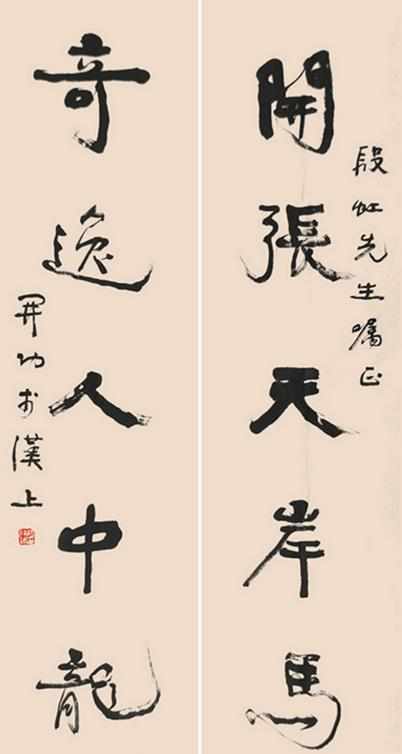 開張天岸馬
段虹先生嘱正
奇逸人中龍
開功於漢上